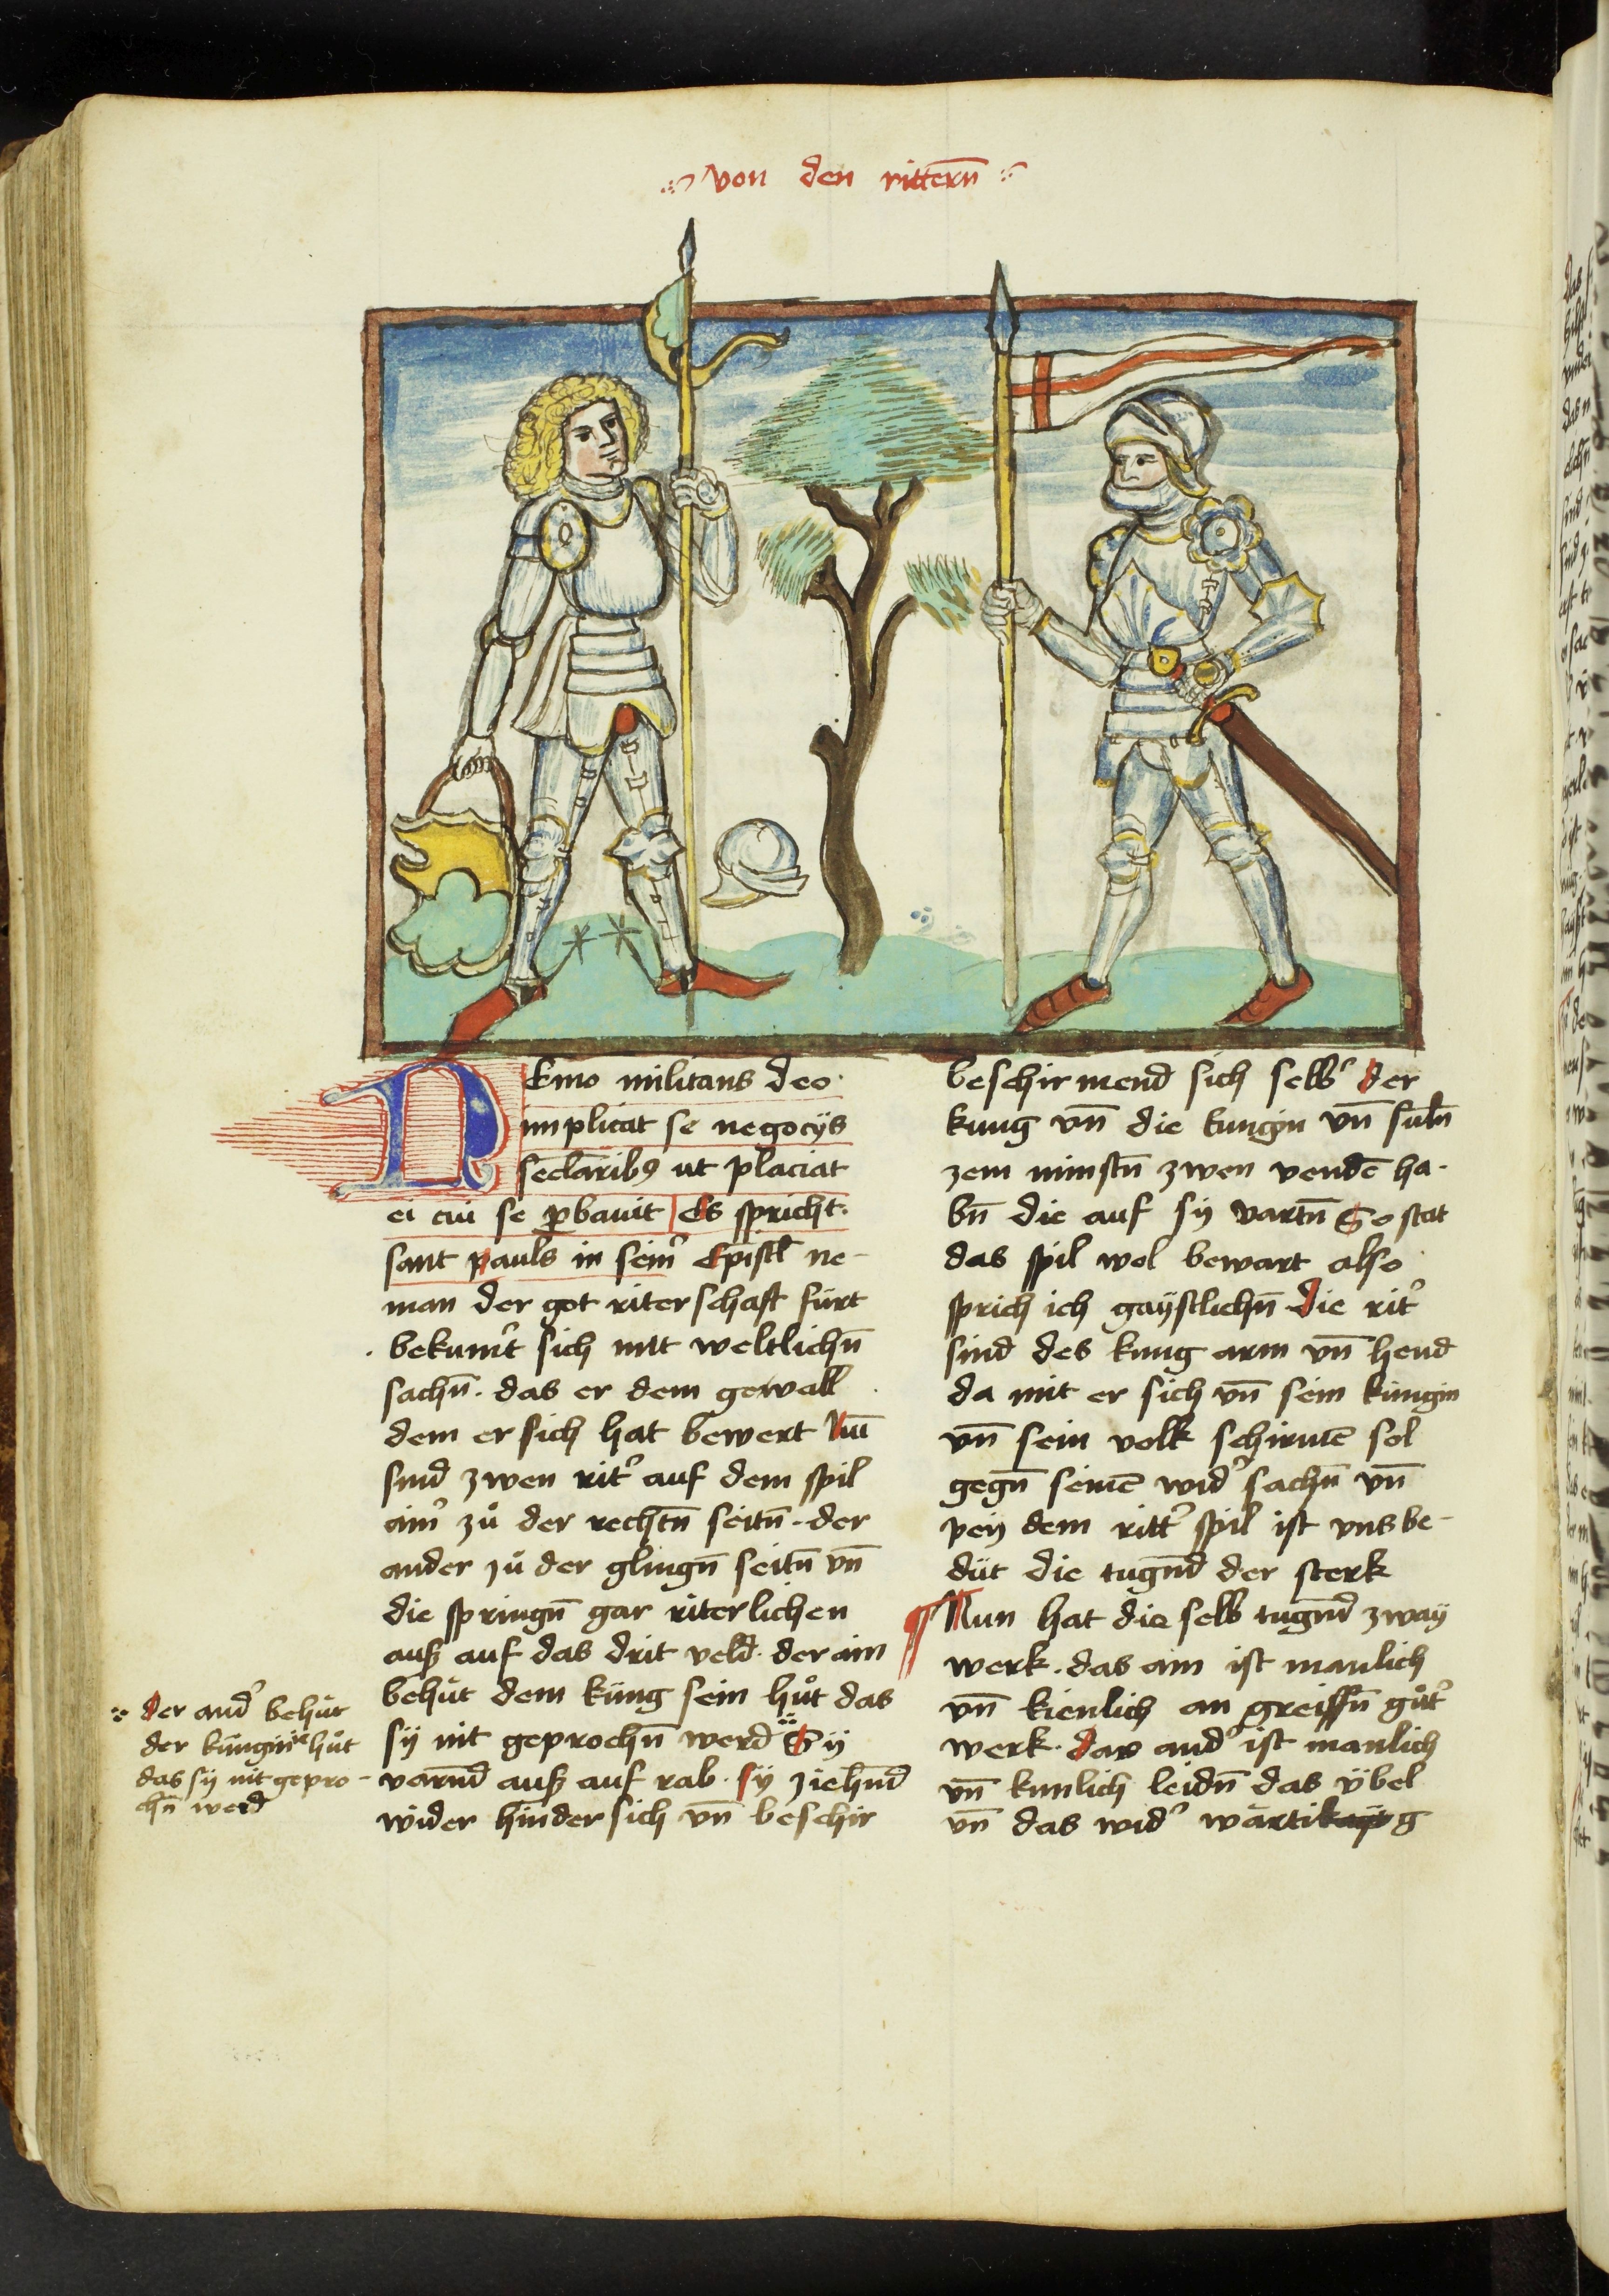 von den ritter̄n
Nemo militans deo
implicat se negocijs
secl̄aribꝰ ut placiat
ei cui se ꝓbauit Es spricht
sant pauls in sein̛ Epistl̄ ne-
man der got riterschaft fürt
bekum̛t sich mit weltlichn̄
sachn̄. das er dem gewall
dem er sich hat bewert Nūn
sind zwen rit̛ auf dem spil
ain̛ zů der rechtn̄ seitn̄. der
ander zů der glingn̄ seitn̄ vn̄
die springn̄ gar riterlichen
auß auf das drit veld. der ain
behüt dem küng sein hůt das
sy nit geprochn̄ werd Sy
varn̄d auß auf rab. sy ziehn̄d
wider hinder sich vn̄ beschir
der and̛ behüt
der küngin̄ ir hůt
das sy nit gepro-
chn̄ werd
beschirmend sich selb̛ der
kung vn̄ die kungin vn̄ suln̄
zem minstn̄ zwen vendē ha-
bn̄ die auf sy vartn̄ So stat
das spil wol bewart also
sprich ich gaystlichn̄ die rit̛
sind des kung arm vn̄ hend
da mit er sich vn̄ sein küngin
vn̄ sein volk schirmē sol
gegn̄ seinē wid̛ sachn̄ vn̄
pey dem ritt̛ spil ist vns be-
düt die tugn̄d der sterk
¶ Nun hat die selb tugn̄d zway
werk. das ain ist manlich
vn̄ kienlich an greiffn̄ gůt̛
werk. das and̛ ist manlich
vn̄ kunlich leidn̄ das übel
vn̄ das wid̛ wärtig